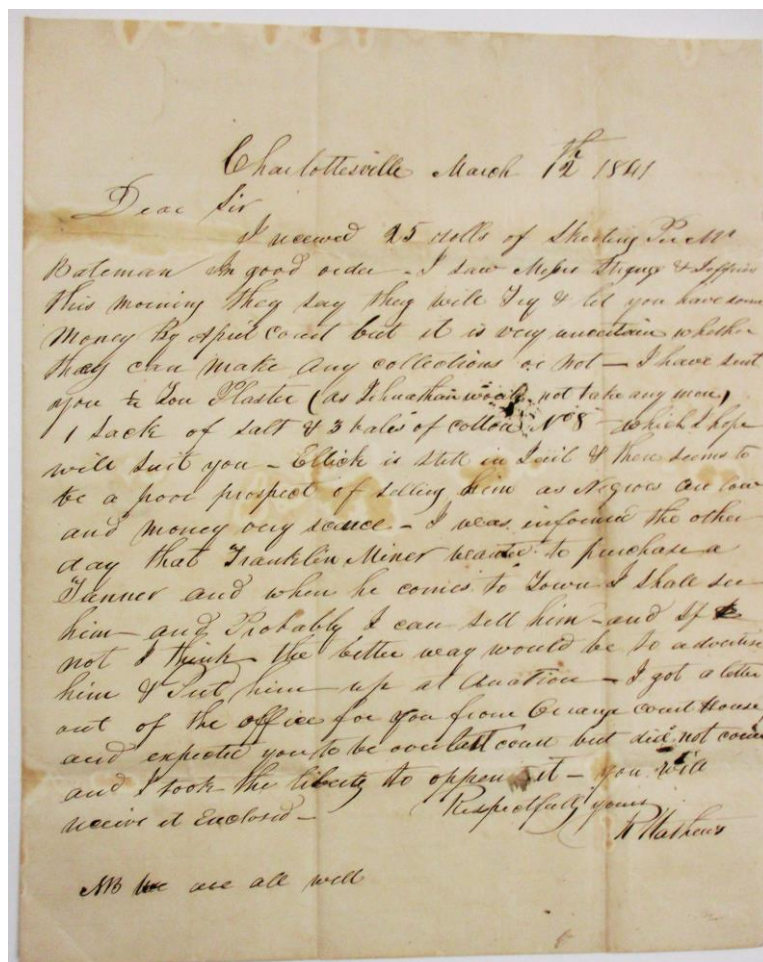 Charlottesville March 12th 1841
Dear Sir
I received 25 rolls of Sheeting Per Mr
Bateman In good order - I saw Messrs & Jeffries
this morning they say they will Try & let you have some
money By April court but it is very uncertain whether
they can make any collections or not - I have sent
you Ton Plaster (as Johnathan would not take any more)
1 Sack of salt & 3 bales of cotton No 8 - which I hope
will suit you - Ellick is still in Jail & there seems to
be a poor prospect of selling him as Negroes are low
and money very scarce - I was informd the other
day that Franklin Minor wanted to purchase a
Tanner and when he comes to Town I shall see
him - and Probably I can sell him - and If
not I think the better way would be to advertise
him & Put him up at Auction - I got a letter
out of the office for you from Orange court House
and expected you to be over last court but did not come
and I took the liberty to oppen it - you will
receive it Enclosed -
Respectfully yours
R Mathews
NB We are all well